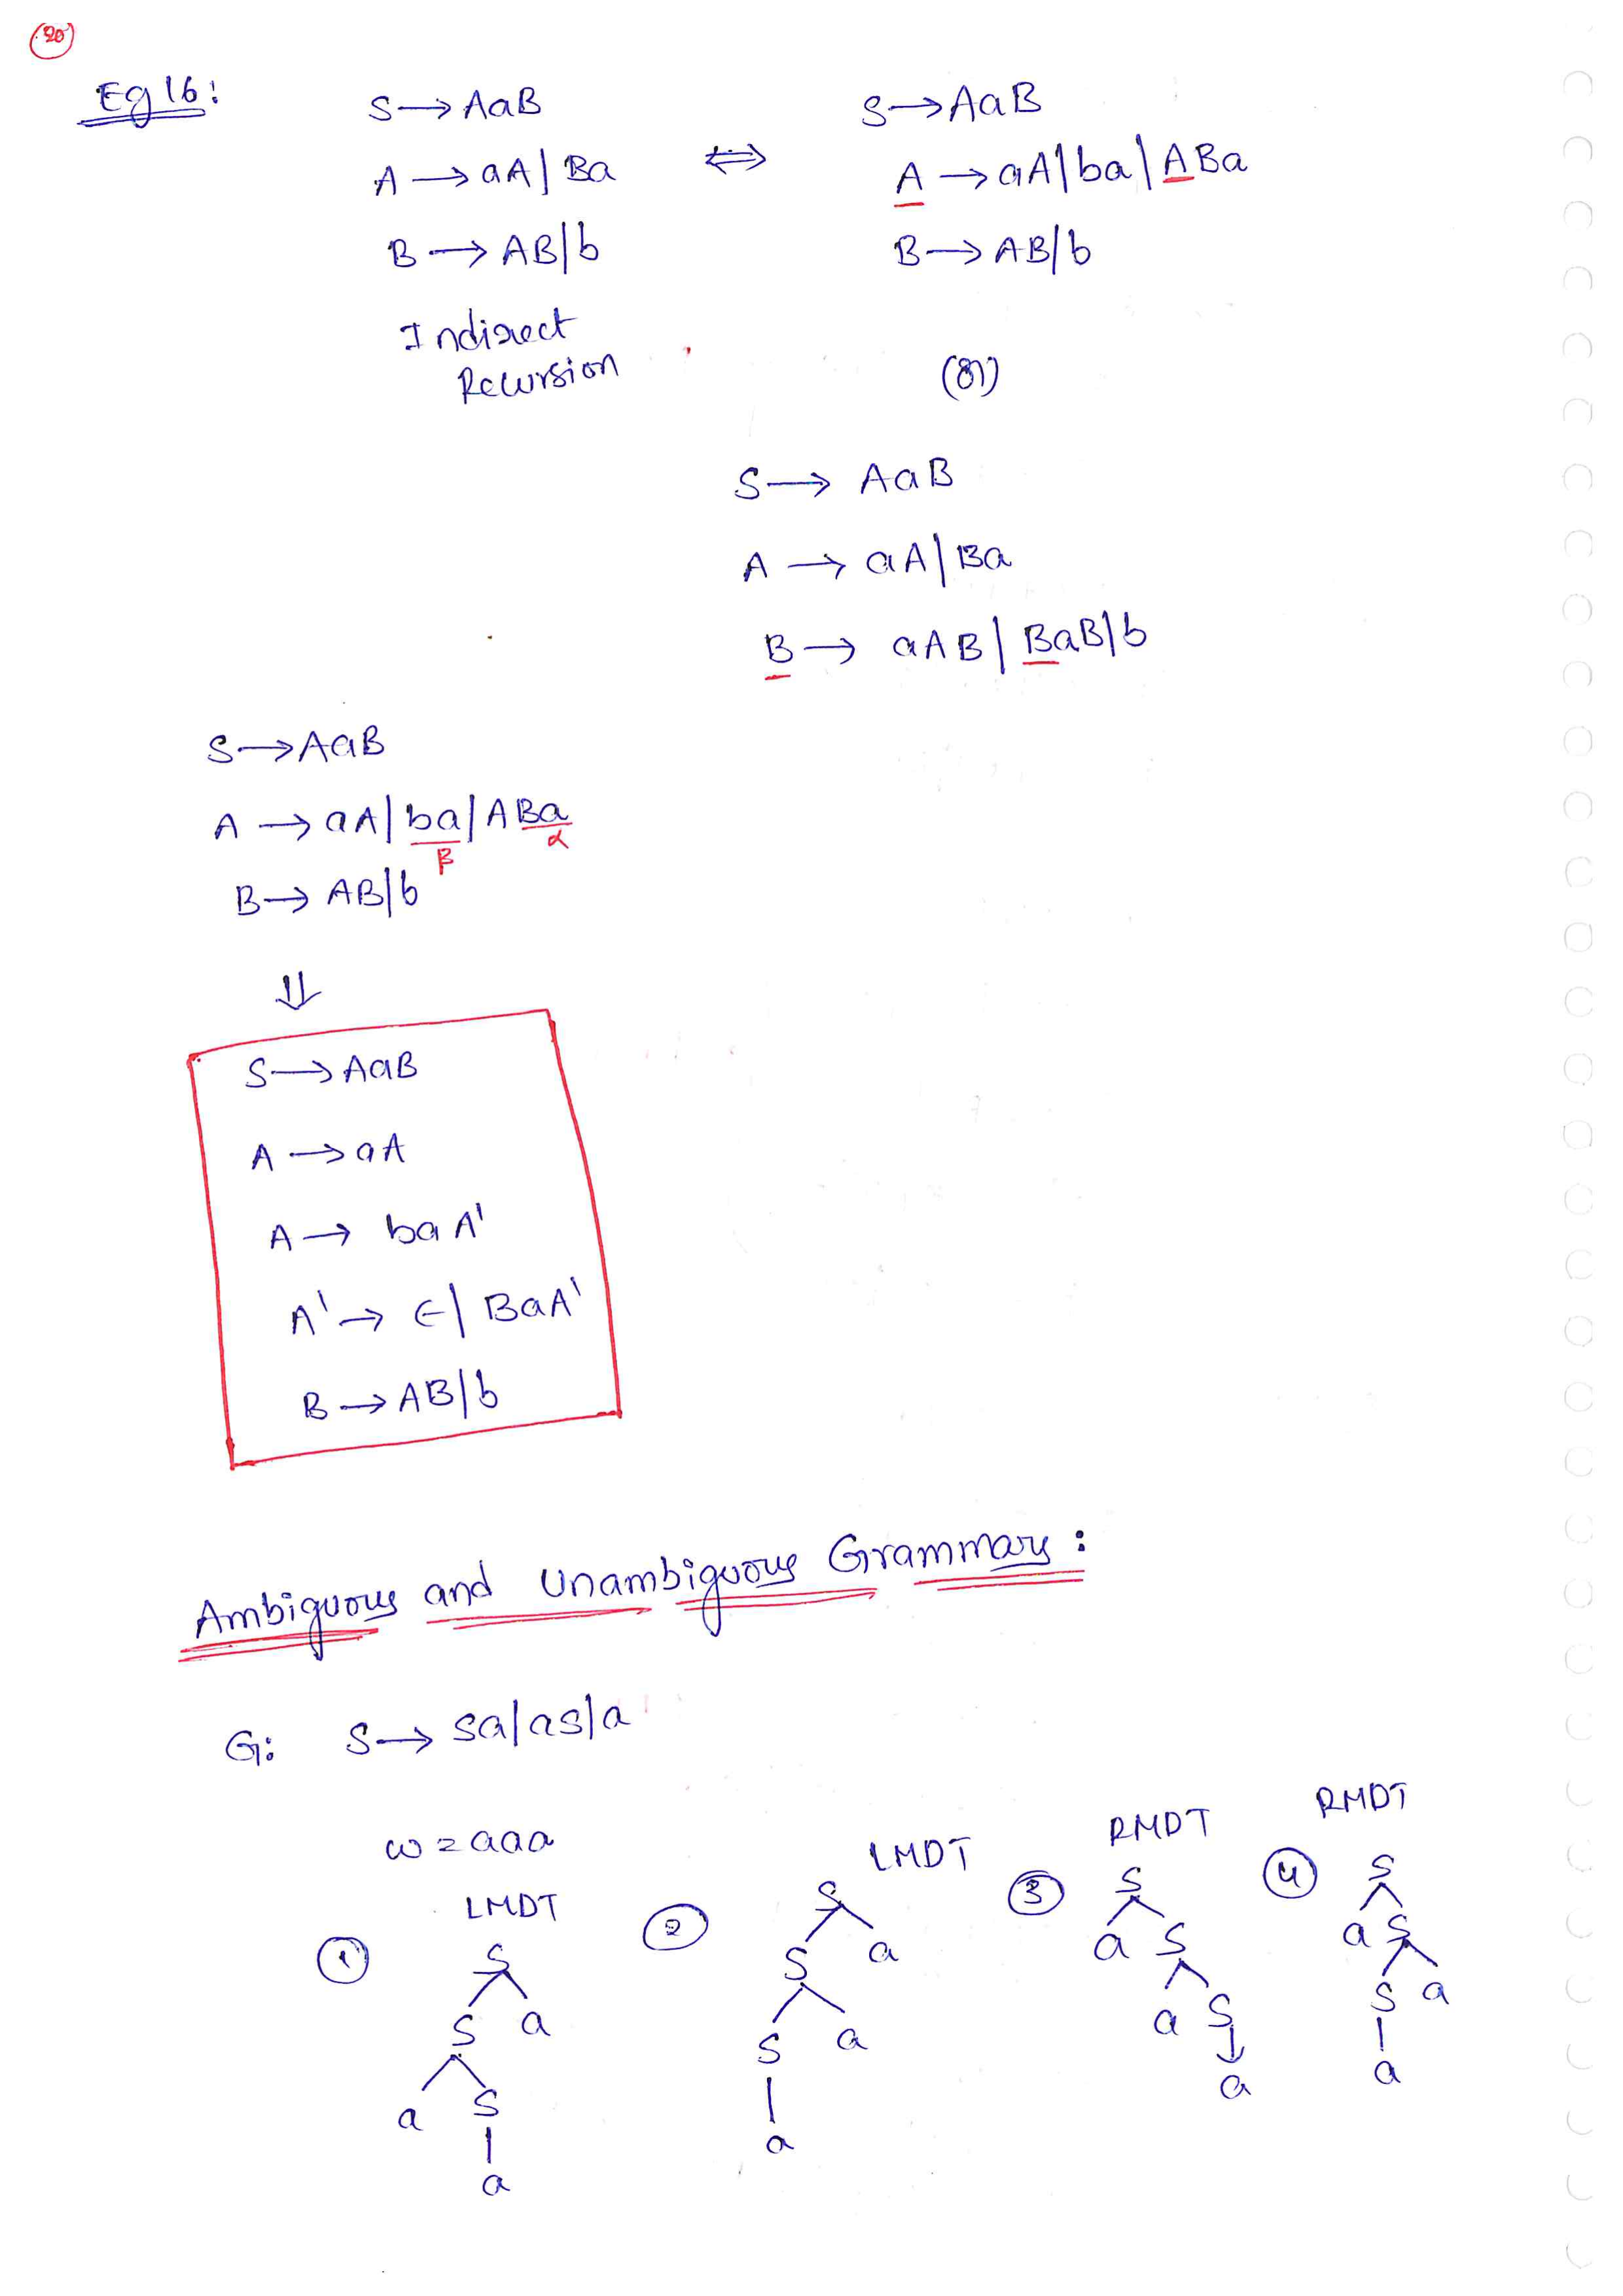 20
Eg 16:
S → AaB
A → aA | Ba
B → AB | b
Indirect
Recursion
⇔
S → AaB
A → aA | ba | ABa
B → AB | b
(or)
S → AaB
A → aA | Ba
B → aAB | BaB | b
S → AaB
A → aA | ba | ABa
β α
B → AB | b
⇓
S → AaB
A → aA
A → ba A'
A' → ∈ | BaA'
B → AB | b
Ambiguous and Unambiguous Grammars:
G: S → Sa | aS | a
w = aaa
LMDT
① S
S a
a S
a
LMDT
② S
S a
S a
a
RMDT
③ S
a S
a S
a
RMDT
④ S
a S
S a
a